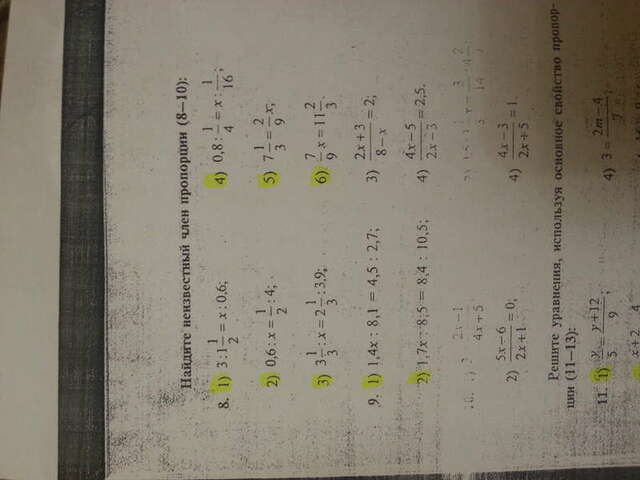 Найдите неизвестный член пропорции (8—10):
8. 1) 3 : 1 1/2 = x : 0,6; 4) 0,8 : 1/4 = x : 1/16;
2) 0,6 : x = 1/2 : 4; 5) 7 1/3 = 2/9 x;
3) 3 1/3 : x = 2 1/3 : 3,9; 6) 7/9 x = 11 2/3.
9. 1) 1,4x : 8,1 = 4,5 : 2,7; 3) (2x + 3)/(8 − x) = 2;
2) 1,7x : 8,5 = 8,4 : 10,5; 4) (4x − 5)/(2x − 3) = 2,5.
2x − 1
4x + 5
2) (5x − 6)/(2x + 1) = 0, 4) (4x − 3)/(2x + 5) = 1.
Решите уравнения, используя основное свойство пропор-
ции (11—13):
11. 1) y/5 = (y + 12)/9; 4) 3 = 2m − 4
x + 2 4